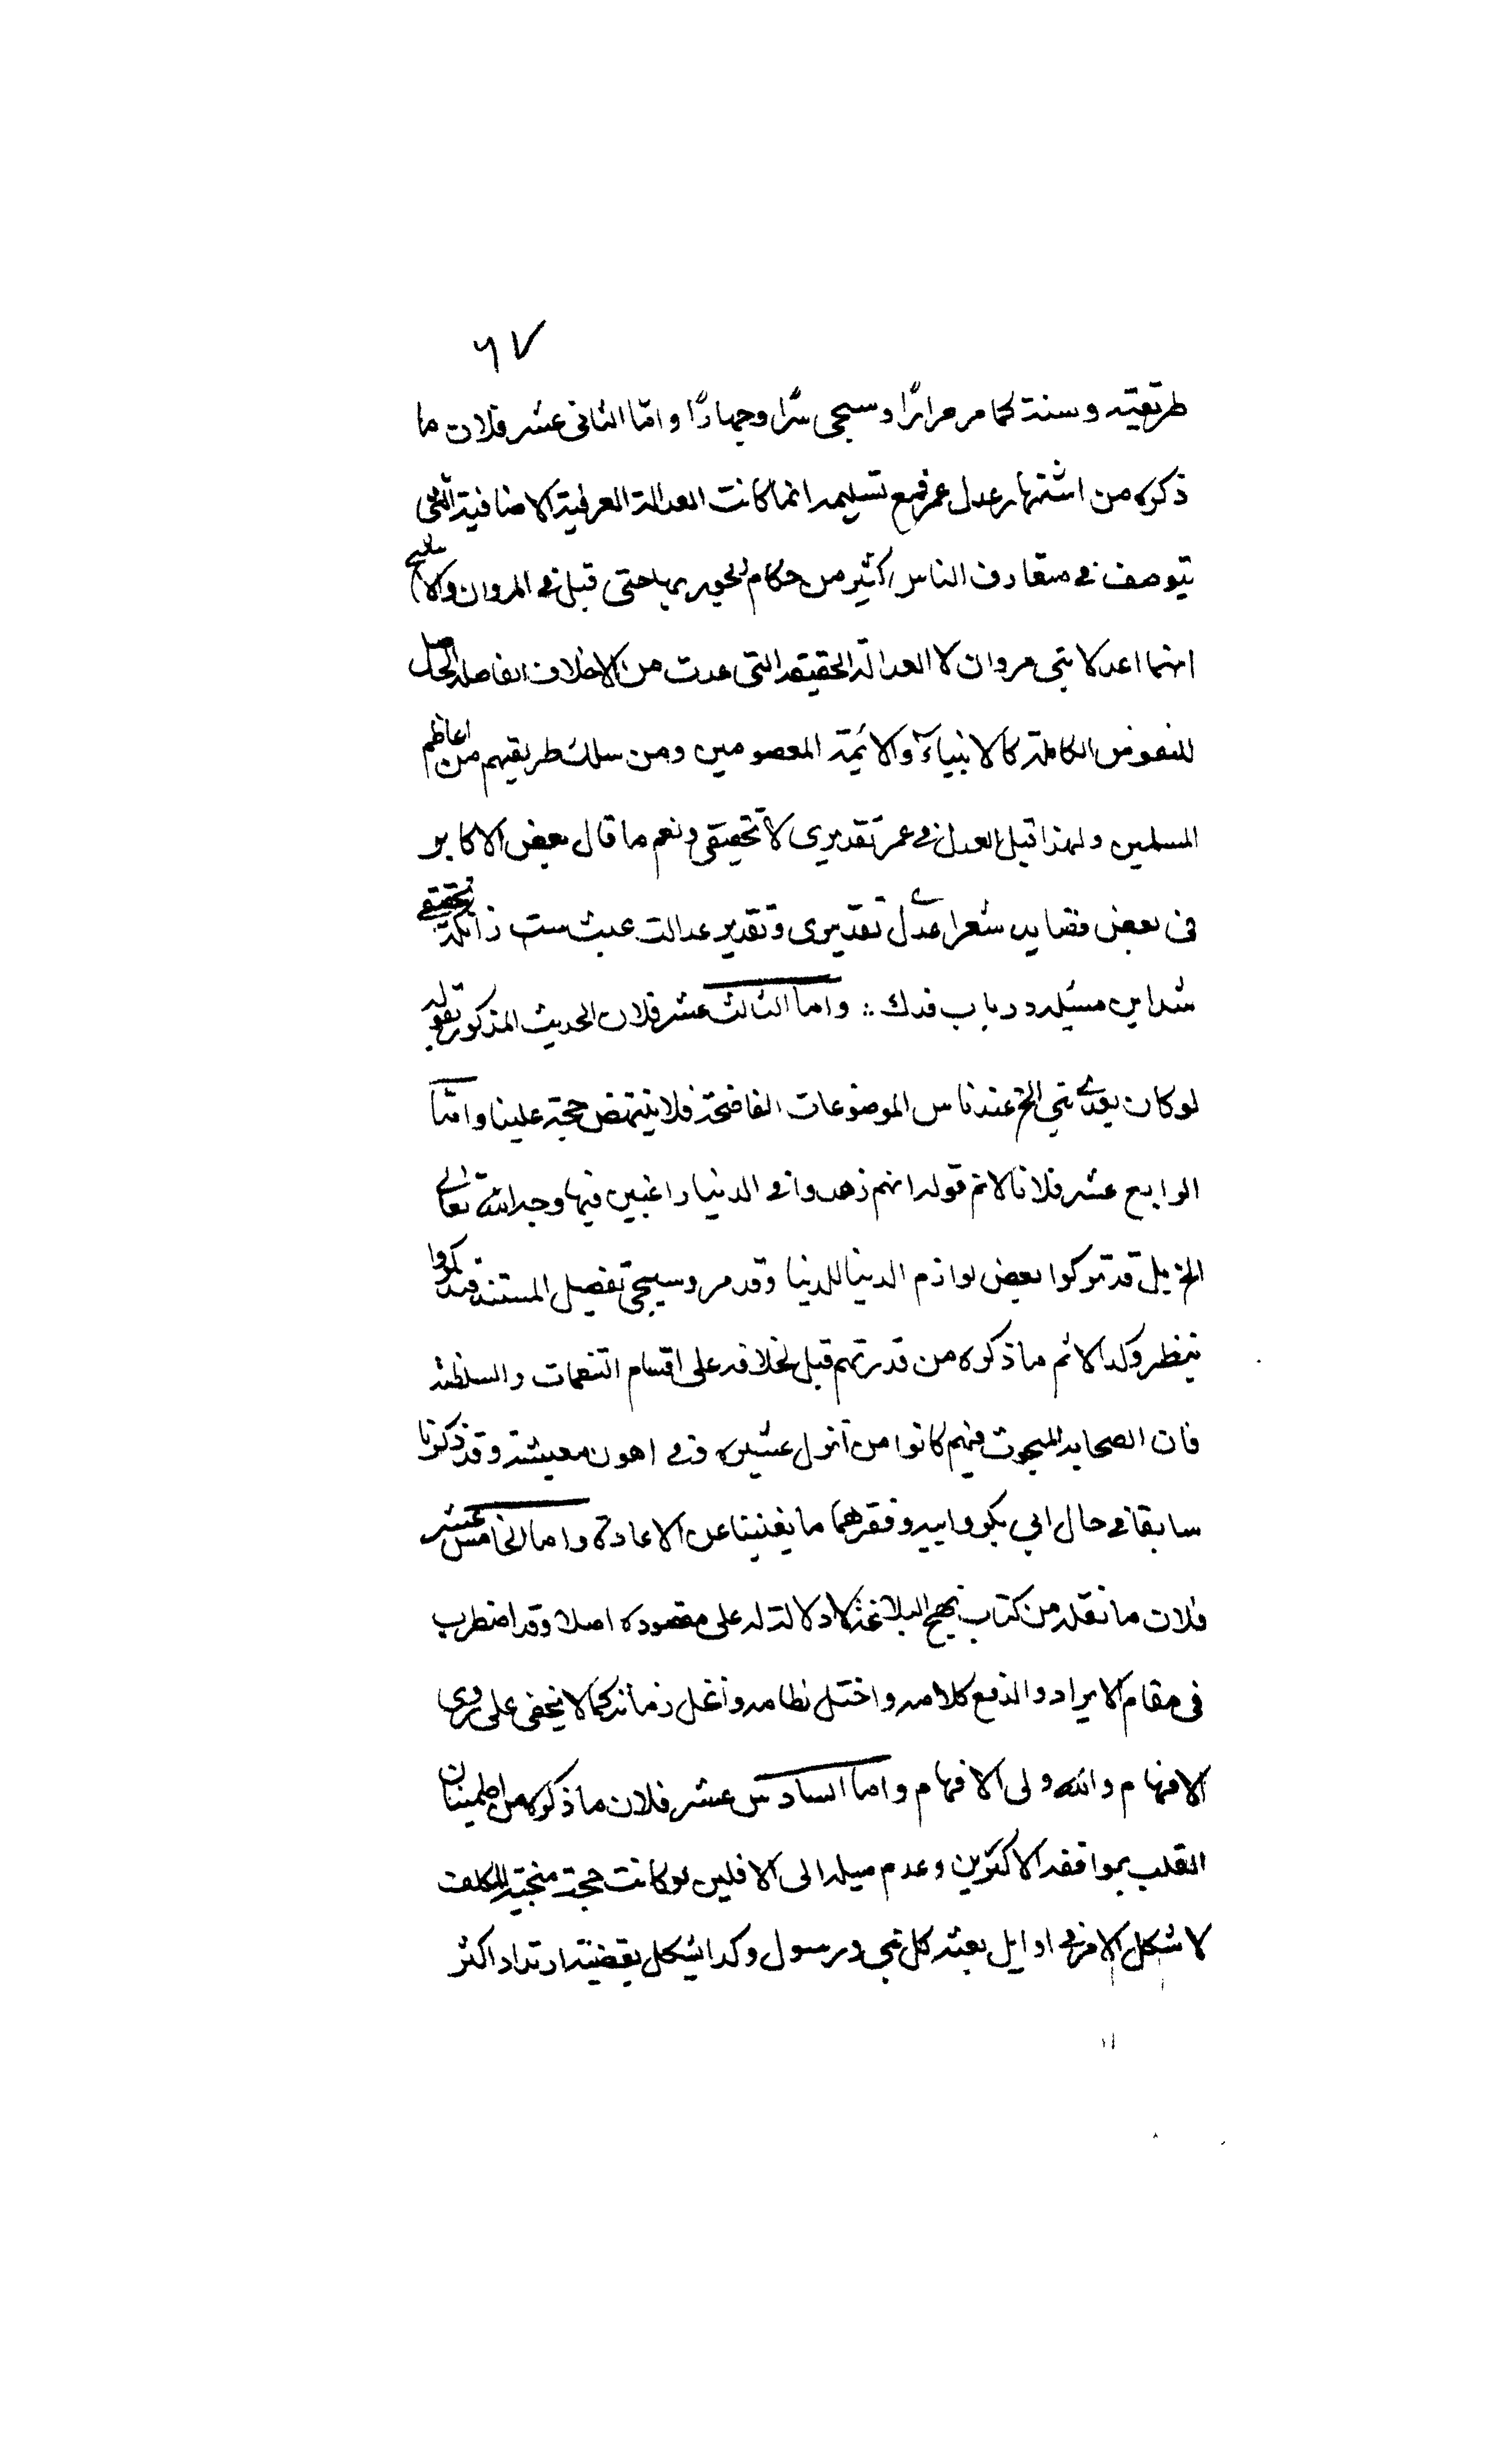 ٦٧
طريقيته وسنة كما مر مرارًا وسيجى سرًا وجهارًا واما الثانى عشر فلان ما
ذكره من اشتهار عدل عمر فمع تسليمه انما كانت العدالة العرفية الاضافية التى
يتوصف فى متعارف الناس كثير من حكام الجور بها حتى قيل فى المروان
انهما اعدلا بنى مروان لا العدالة الحقيقه التى عدت من الاخلاق الفاضله الحاصل
للنفوس الكاملة كالانبياء والائمة المعصومين ومن سلك طريقهم من اعاظم
المسلمين ولهذا قيل العدل فى عمر تقديرى لا تحقيقى ونعم ما قال بعض الاكابر
فى بعض قصايده شعر عدل تقديرى وتقدير عدالت عبث ست زانكه تحقيقى
شد اين مسئله در باب فدك ∴ واما الثالث عشر فلان الحديث المذكور بقوله
لو كان بعدى نبى الخ عندنا من الموضوعات الفاضحة فلا ينتهض حجة علينا واما
الرابع عشر فلانا لانم قوله انهم زهدوا فى الدنيا راغبين فيها وجه الله تعالى
الخ بل قد تركوا بعض لوازم الدنيا للدنيا وقد مر وسيجى تفصيل المستند
ينظر وكذا لانم ما ذكره من قدرتهم قبل الخلافه على اقسام التنعمات والسلطنه
فان الصحابه المبحوث فيهم كانوا من انزل عشيره وفى اهون معيشة وقد ذكرنا
سابقا فى حال ابى بكر وابيه وفقرهما ما يغنينا عن الاعادة واما الخامس عشر
فلان ما نقله من كتاب نهج البلاغة لا دلالة له على مقصوده اصلا وقد اضطرب
فى مقام الايراد والدفع كلامه واختل نظامه وانحل زمانه كما لا يخفى على ذوى
الافهام والله ولى الافهام واما السادس عشر فلان ما ذكره من اطمينان
القلب بموافقه الاكثرين وعدم ميله الى الاقلين لو كانت حجة منجية للمكلف
لاشكل الامر فى اوايل بعثه كل نبى ورسول وكذا يشكل بقضية ارتداد اكثر